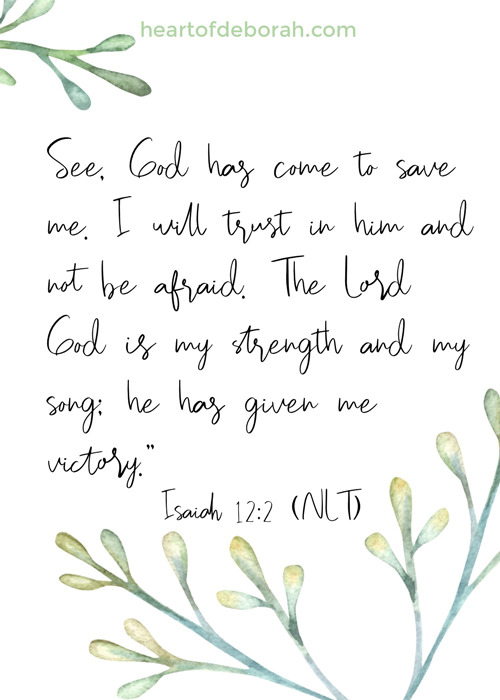 heartofdeborah.com
See, God has come to save
me. I will trust in him and
not be afraid. The Lord
God is my strength and my
song; he has given me
victory."
Isaiah 12:2 (NLT)